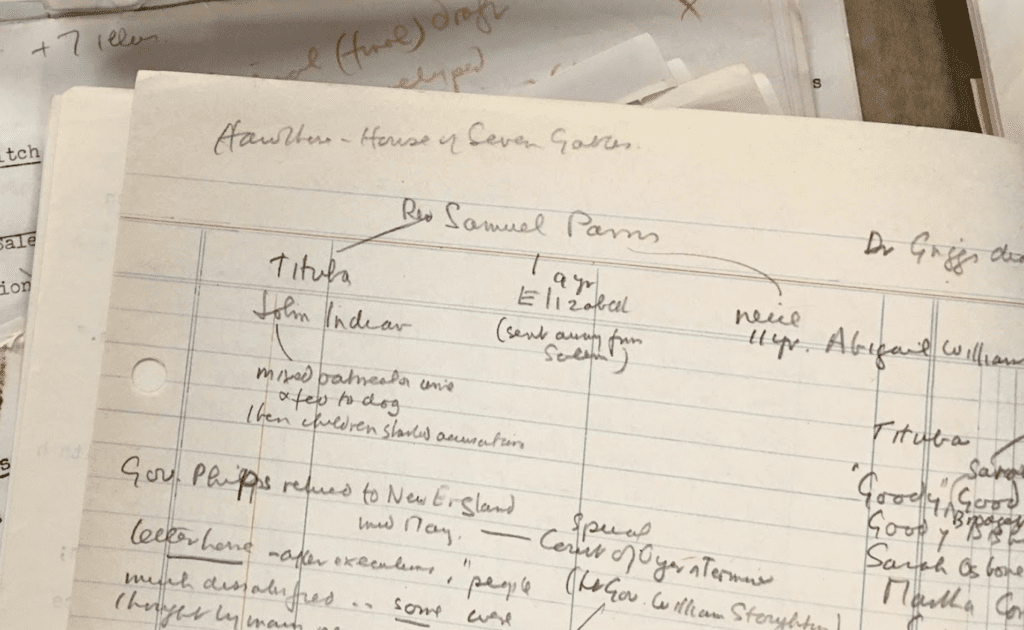 + 7 illus
(final) draft
x
s
itch
Sale
ion)
s
Hawthorne - House of Seven Gables.
Rev Samuel Parris
Dr Griggs
Tituba
John Indian
9 yr
Elizabeth
(sent away from
Salem)
niece
11 yr. Abigail William
mixed oatmeal urine
& fed to dog
then children started accusations
Tituba
Sara
"Goody" Good
Goody
Sarah Osborne
Martha Cor
Gov. Phipps returned to New England
mid May. — Special
Court of Oyer & Terminer
(Lt Gov. William Stoughton)
letter home - after executions, "people
much dissatisfied .. some were